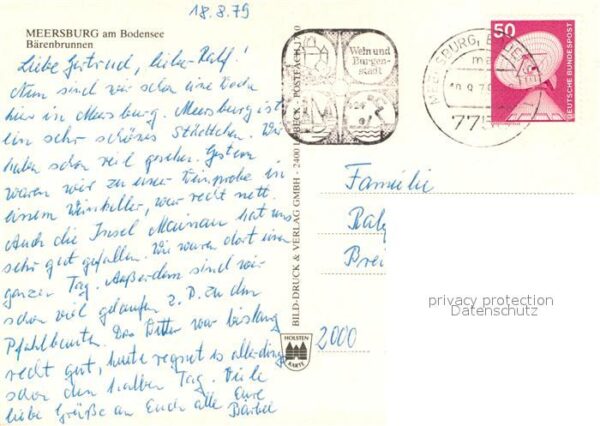 18.8.79
MEERSBURG am Bodensee
Bärenbrunnen
Liebe Gertrud, lieber Ralf!
Nun sind wir schon eine Woche
hier in Meersburg. Meersburg ist
ein sehr schönes Städtchen. Wir
haben schon viel gesehen. Gestern
waren wir zu einer Weinprobe in
einem Weinkeller, war recht nett.
Auch die Insel Mainau hat uns
sehr gut gefallen. Wir waren dort einen
ganzen Tag. Außerdem sind wir
schon viel gelaufen z.B. zu den
Pfahlbauten. Das Wetter war bislang
recht gut, heute regnet es allerdings
schon den halben Tag. Viele
liebe Grüße an Euch alle Eure
Bärbel
BILD-DRUCK & VERLAG GMBH - 2400 LÜBECK - POSTFACH
HOLSTEN
KARTE
Wein und
Burgen-
stadt
MEERSBURG, BODENSEE
ma
775
50
DEUTSCHE BUNDESPOST
Familie
Ralf
2000
privacy protection
Datenschutz